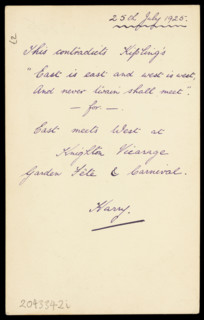 25th July 1925.
27
This contradicts Kipling's
"East is east and west is west,
And never twain shall meet".
— for —
East meets West at
Knighton Vicarage
Garden Fête & Carnival.
Harry.
2043342i